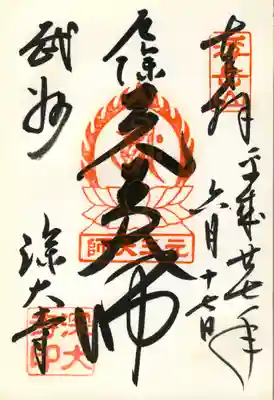 浮岳山
奉拝
平成廿七年
六月十七日
厄除
元三大師
元三大師
武州
深大寺
深大
寺印